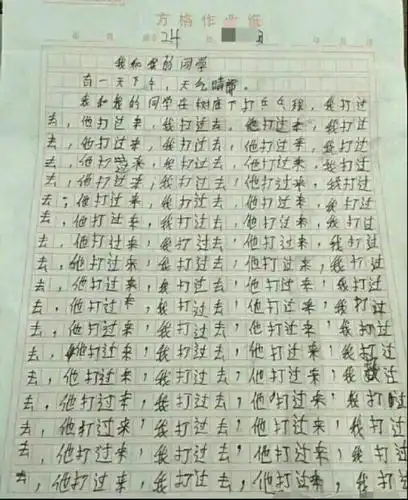 方格作业纸
24
我和我的同学
有一天下午，天气晴朗。
我和我的同学在树底下打乒乓球，我打过
去，他打过来，我打过去，他打过来，我打过
去，他打过来，我打过去，他打过来，我打过
去，他打过来，我打过去，他打过来，我打过
去，他打过来，我打过去，他打过来，我打过
去，他打过来，我打过去，他打过来，我打过
去，他打过来，我打过去，他打过来，我打过
去，他打过来，我打过去，他打过来，我打过
去，他打过来，我打过去，他打过来，我打过
去，他打过来，我打过去，他打过来，我打过
去，他打过来，我打过去，他打过来，我打过
去，他打过来，我打过去，他打过来，我打过
去，他打过来，我打过去，他打过来，我打过
去，他打过来，我打过去，他打过来，我过
去，他打过来，我打过去，他打过来，我打过
去，他打过来，我打过去，他打过来，我打过
去，他打过来，我打过去，他打过来，我打过
去，他打过来，我打过去，他打过来，我打过